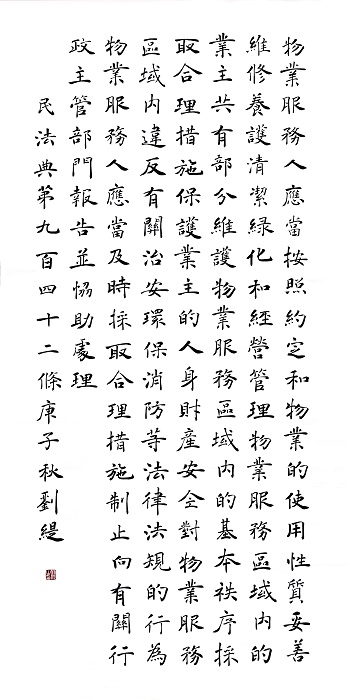 物業服務人應當按照約定和物業的使用性質妥善
維修養護清潔綠化和經營管理物業服務區域内的
業主共有部分維護物業服務區域内的基本秩序採
取合理措施保護業主的人身財產安全對物業服務
區域内違反有關治安環保消防等法律法規的行為
物業服務人應當及時採取合理措施制止向有關行
政主管部門報告並協助處理
民法典第九百四十二條庚子秋劉緹